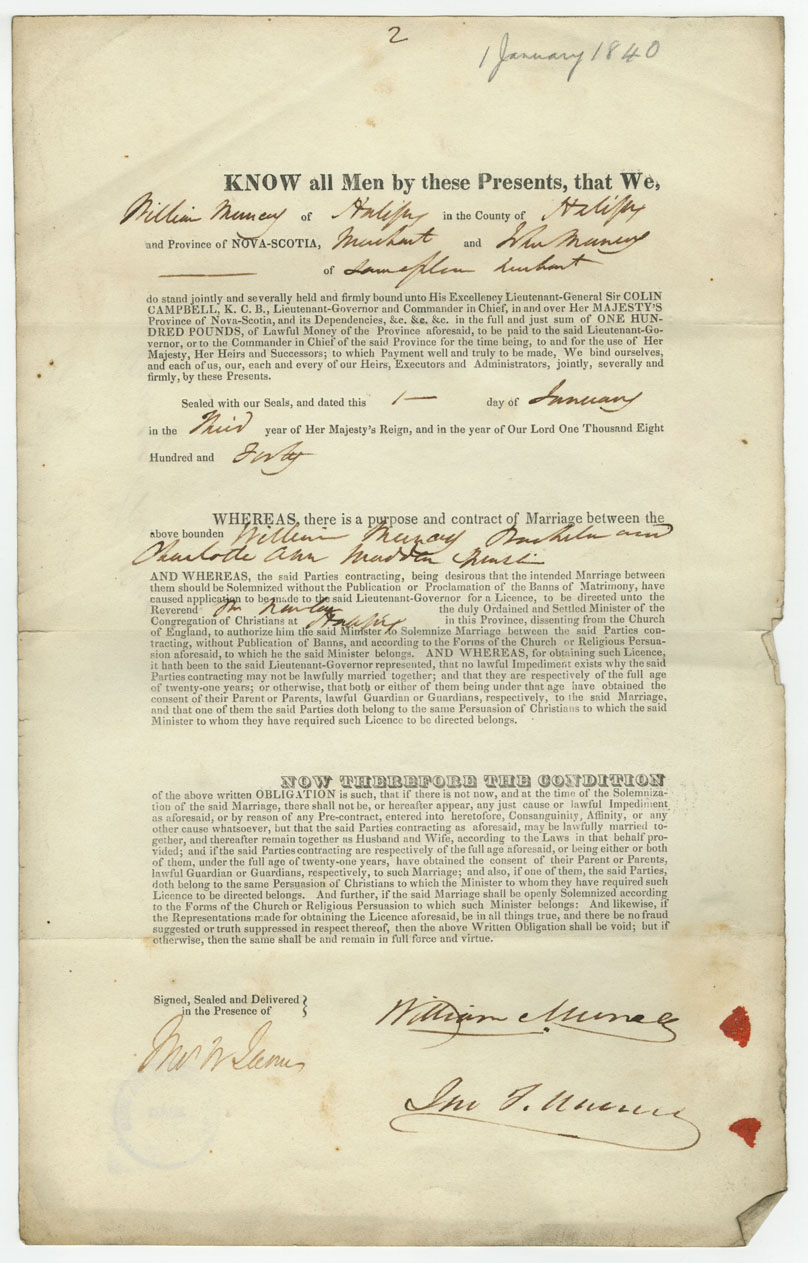 2
1 January 1840
KNOW all Men by these Presents, that We,
William of Halifax in the County of Halifax
and Province of NOVA-SCOTIA, Merchant and John
of same place Merchant
do stand jointly and severally held and firmly bound unto His Excellency Lieutenant-General Sir COLIN
CAMPBELL, K. C. B., Lieutenant-Governor and Commander in Chief, in and over Her MAJESTY'S
Province of Nova-Scotia, and its Dependencies, &c. &c. &c. in the full and just sum of ONE HUN-
DRED POUNDS, of Lawful Money of the Province aforesaid, to be paid to the said Lieutenant-Go-
vernor, or to the Commander in Chief of the said Province for the time being, to and for the use of Her
Majesty, Her Heirs and Successors; to which Payment well and truly to be made, We bind ourselves,
and each of us, our, each and every of our Heirs, Executors and Administrators, jointly, severally and
firmly, by these Presents.
Sealed with our Seals, and dated this 1 — day of January
in the Third year of Her Majesty's Reign, and in the year of Our Lord One Thousand Eight
Hundred and Forty
WHEREAS, there is a purpose and contract of Marriage between the
above bounden William Bachelor and
Charlotte Ann Madden Spinster
AND WHEREAS, the said Parties contracting, being desirous that the intended Marriage between
them should be Solemnized without the Publication or Proclamation of the Banns of Matrimony, have
caused application to be made to the said Lieutenant-Governor for a Licence, to be directed unto the
Reverend the duly Ordained and Settled Minister of the
Congregation of Christians at Halifax in this Province, dissenting from the Church
of England, to authorize him the said Minister to Solemnize Marriage between the said Parties con-
tracting, without Publication of Banns, and according to the Forms of the Church or Religious Persua-
sion aforesaid, to which he the said Minister belongs. AND WHEREAS, for obtaining such Licence,
it hath been to the said Lieutenant-Governor represented, that no lawful Impediment exists why the said
Parties contracting may not be lawfully married together; and that they are respectively of the full age
of twenty-one years; or otherwise, that both or either of them being under that age have obtained the
consent of their Parent or Parents, lawful Guardian or Guardians, respectively, to the said Marriage,
and that one of them the said Parties doth belong to the same Persuasion of Christians to which the said
Minister to whom they have required such Licence to be directed belongs.
NOW THEREFORE THE CONDITION
of the above written OBLIGATION is such, that if there is not now, and at the time of the Solemniza-
tion of the said Marriage, there shall not be, or hereafter appear, any just cause or lawful Impediment
as aforesaid, or by reason of any Pre-contract, entered into heretofore, Consanguinity, Affinity, or any
other cause whatsoever, but that the said Parties contracting as aforesaid, may be lawfully married to-
gether, and thereafter remain together as Husband and Wife, according to the Laws in that behalf pro-
vided; and if the said Parties contracting are respectively of the full age aforesaid, or being either or both
of them, under the full age of twenty-one years, have obtained the consent of their Parent or Parents,
lawful Guardian or Guardians, respectively, to such Marriage; and also, if one of them, the said Parties,
doth belong to the same Persuasion of Christians to which the Minister to whom they have required such
Licence to be directed belongs. And further, if the said Marriage shall be openly Solemnized according
to the Forms of the Church or Religious Persuasion to which such Minister belongs: And likewise, if
the Representations made for obtaining the Licence aforesaid, be in all things true, and there be no fraud
suggested or truth suppressed in respect thereof, then the above Written Obligation shall be void; but if
otherwise, then the same shall be and remain in full force and virtue.
Signed, Sealed and Delivered
in the Presence of
William